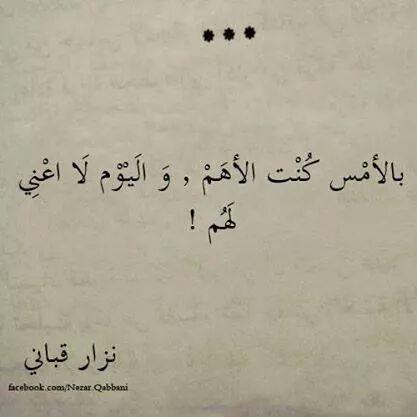 ***
بالأمْس كُنْت الأهَمْ , وَ الَيْوْم لَا اعْنِي
لَهُم !
نزار قباني
facebook.com/Nezar.Qabbani